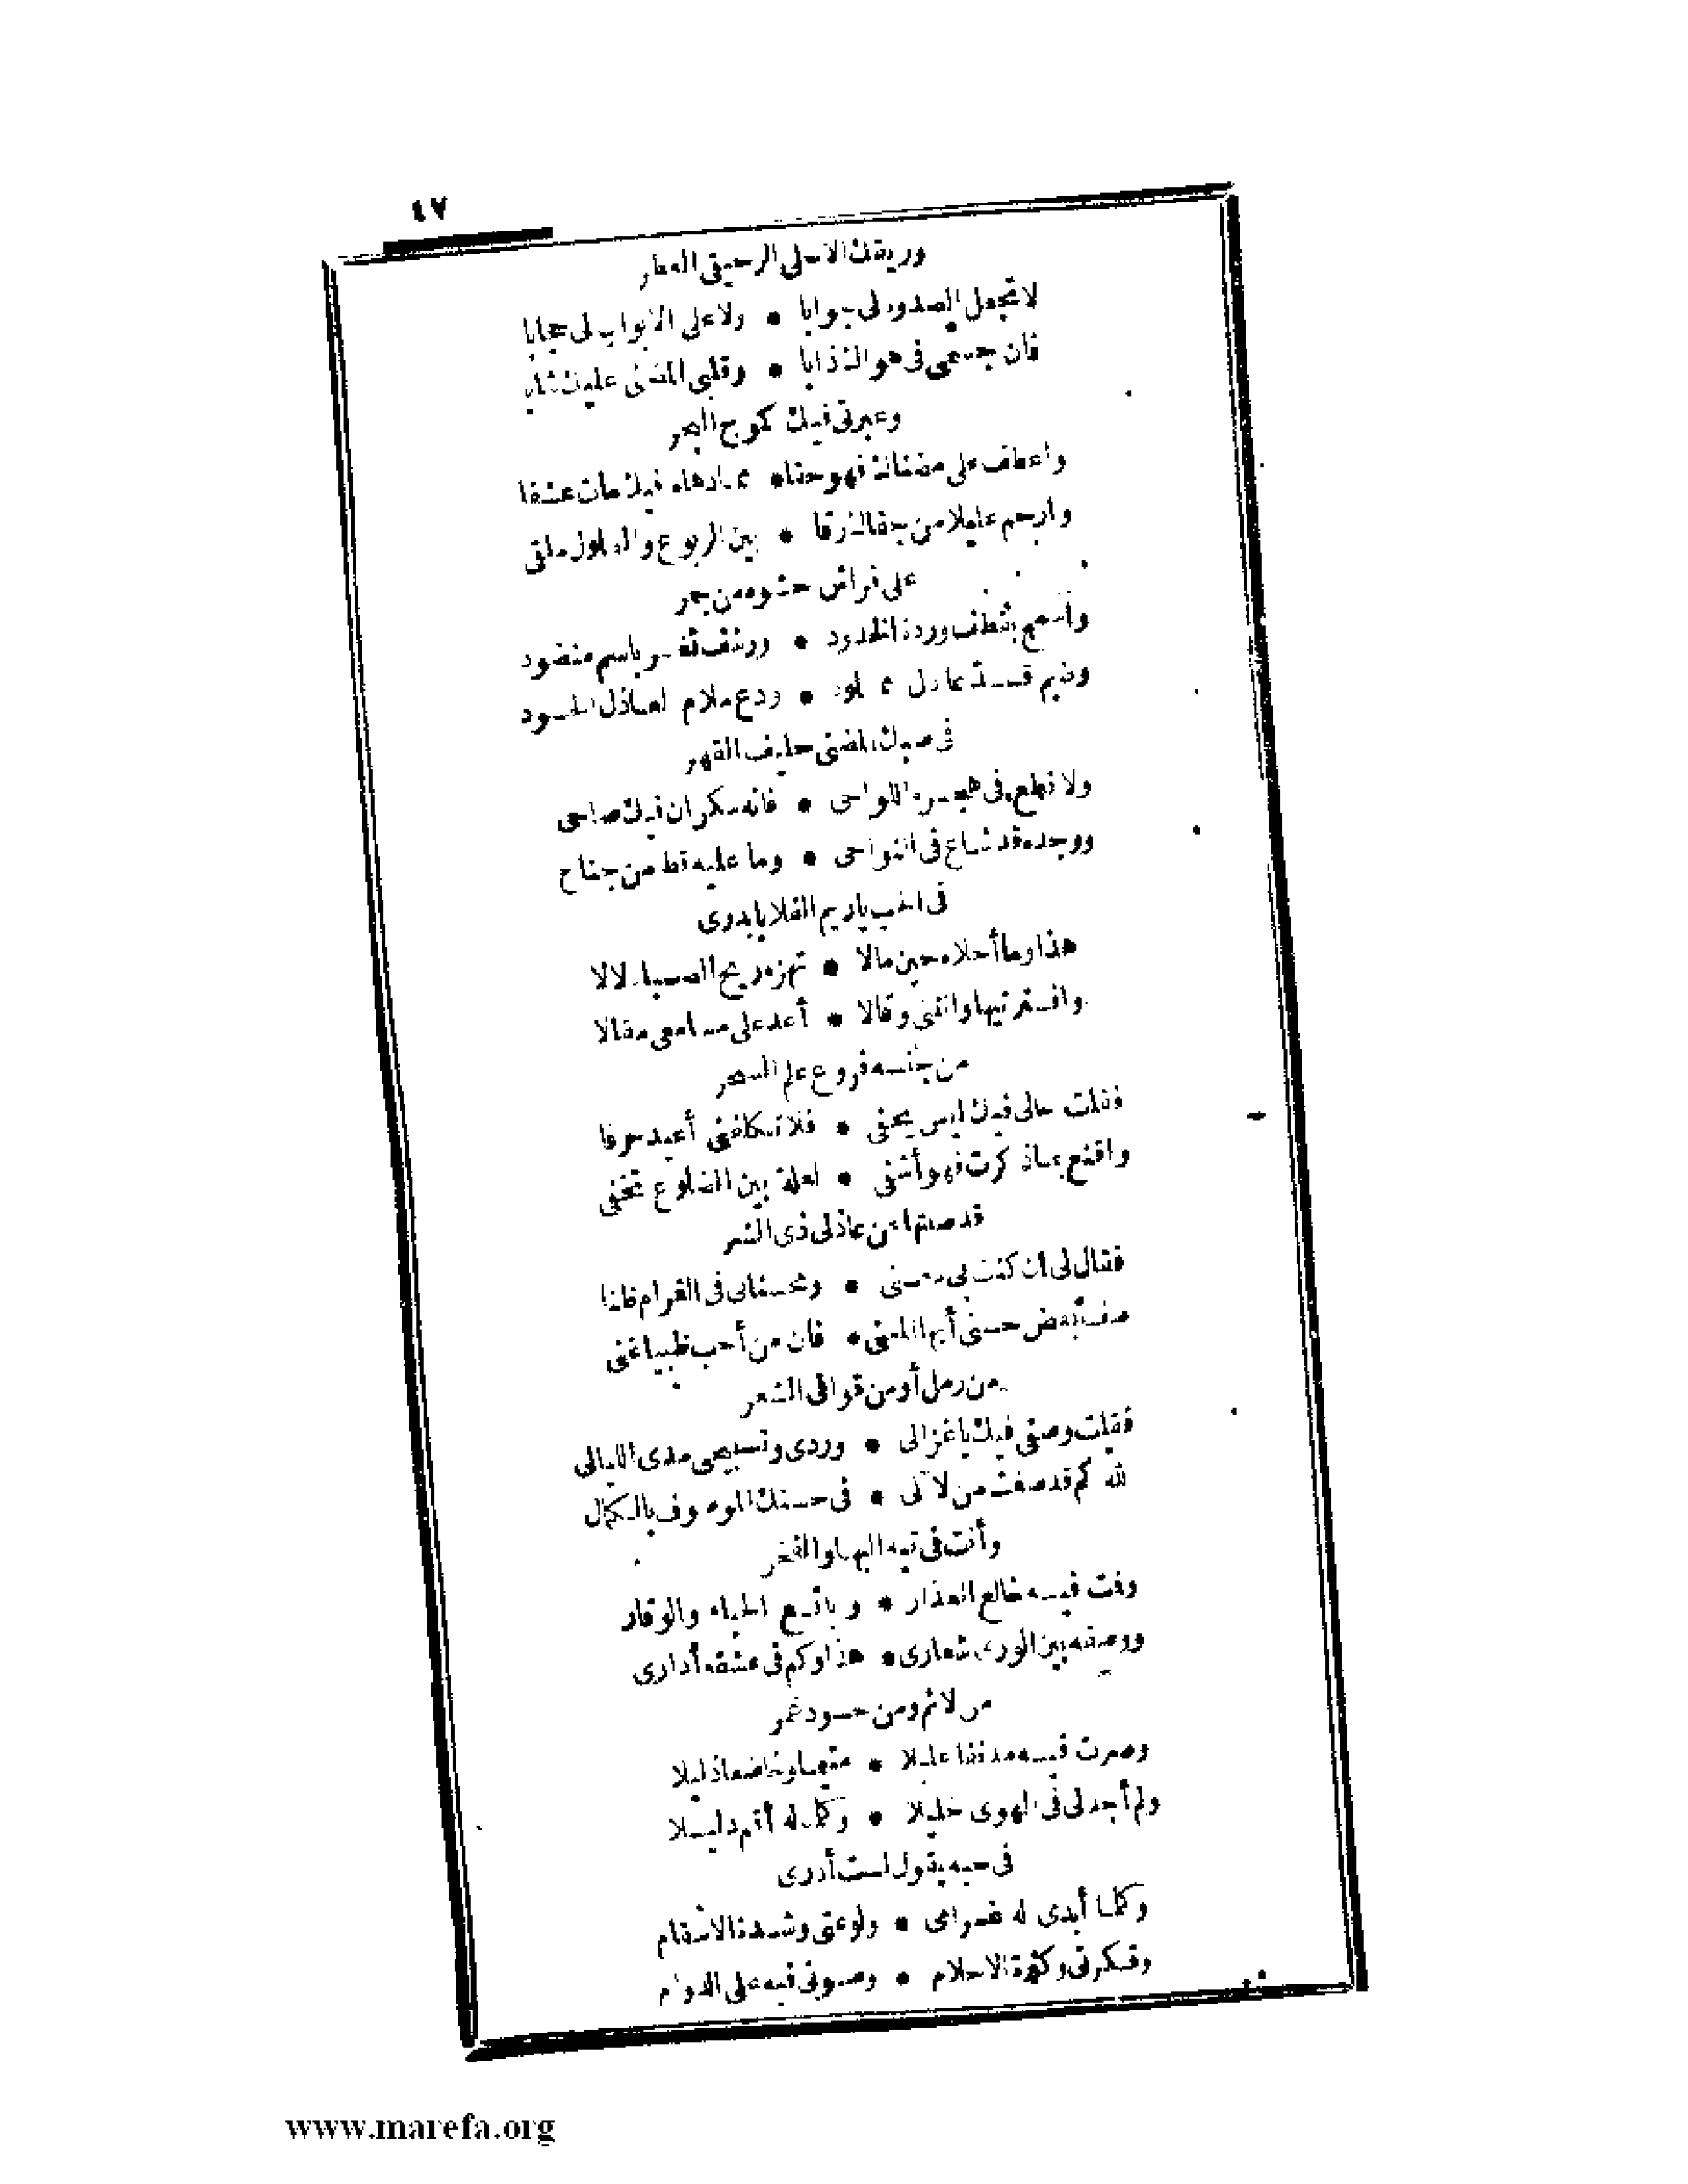 ٤٧
وريقك الاحلى الرحيق العطر
لا تجعل الصدود لى جوابا * ولا على الابواب لى حجابا
فان جسمى فى هواك ذابا * وقلبى المضنى عليك شابا
وعبرتى فيك كموج البحر
واعطف على مضناك فهو حقا * مما دهاه فيك مات عشقا
وارحم عليلا من جفاك رقا * بين الربوع والطلول ملقى
على فراش حشوه من جمر
واسمح بقطف وردة الخدود * ورشف ثغر باسم منضود
وضم قد عادل * ودع ملام العاذل الحسود
فى صبك المضنى حليف القهر
ولا تطع فى هجره اللواحى * فانه سكران فيك صاحى
ووجده قد شاع فى النواحى * وما عليه قط من جناح
فى الحب ياريم الفلا يابدرى
هذا وما أحلاه حين مالا * تهزه ريح الصبا دلالا
وافتر تيها وانثنى وقالا * أعد على مسامعى مقالا
من جنسه فروع علم السحر
فقلت حالى فيك ليس يخفى * فلا تكلفنى أعيد حرفا
واقنع بما ذكرت فهو أشفى * لعلة بين الضلوع تخفى
قد صنتها عن عاذلى ذى الشر
فقال لى ان كنت بى معنى * وتحسنانى فى الغرام فانا
صف بعض حسنى أيها المعنى * فان من أحب ظبيا غنى
من رمل أو من قوافى الشعر
فقلت وصفى فيك ياغزالى * وردى وتسبيحى مدى الليالى
لله كم قد صغت من لآلى * فى حسنك الموصوف بالكمال
وأنت فى تيه البها والفخر
وقت فيه خالع العذار * وبائع الحياء والوقار
ووصفه بين الورى شعارى * هذا وكم فى عشقه أدارى
من لائم ومن حسود غمر
وصرت فيه مدنفا عليلا * متيما وخاضعا ذليلا
ولم أجد لى فى الهوى خليلا * وكم له أقم دليلا
فى حبه يقول لست أدرى
وكلما أبدى له غرامى * ولوعتى وشدة الاسقام
وفكرتى وكثرة الاحلام * وصبوتى فيه على الدوام
www.marefa.org